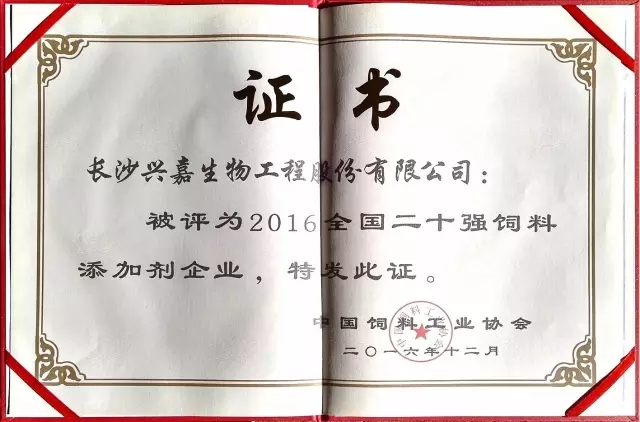 证书
长沙兴嘉生物工程股份有限公司：
被评为2016全国二十强饲料
添加剂企业，特发此证。
中国饲料工业协会
二〇一六年十二月